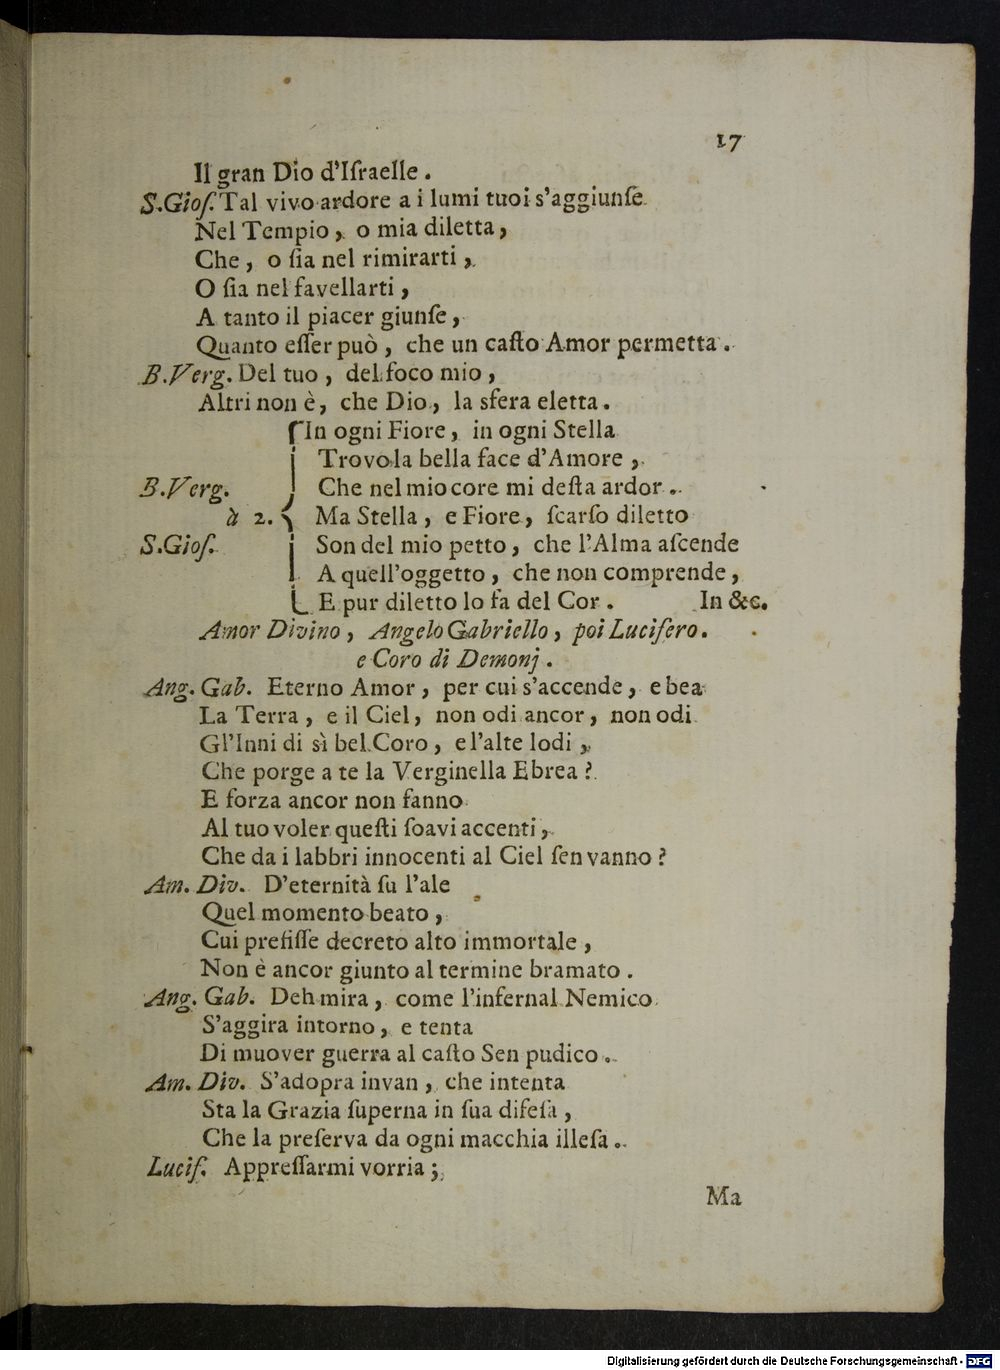 17
Il gran Dio d'Iſraelle .
S.Gioſ. Tal vivo ardore a i lumi tuoi s'aggiunſe
Nel Tempio , o mia diletta ,
Che , o ſia nel rimirarti ,
O ſia nel favellarti ,
A tanto il piacer giunſe ,
Quanto eſſer può , che un caſto Amor permetta .
B.Verg. Del tuo , del foco mio ,
Altri non è , che Dio , la sfera eletta .
In ogni Fiore , in ogni Stella
Trovo la bella face d'Amore ,
B.Verg. Che nel mio core mi deſta ardor .
à 2. Ma Stella , e Fiore , ſcarſo diletto
S.Gioſ. Son del mio petto , che l'Alma aſcende
A quell'oggetto , che non comprende ,
E pur diletto lo fa del Cor . In &c.
Amor Divino , Angelo Gabriello , poi Lucifero .
e Coro di Demonj .
Ang. Gab. Eterno Amor , per cui s'accende , e bea
La Terra , e il Ciel , non odi ancor , non odi
Gl'Inni di sì bel Coro , e l'alte lodi ,
Che porge a te la Verginella Ebrea ?
E forza ancor non fanno
Al tuo voler queſti ſoavi accenti ,
Che da i labbri innocenti al Ciel ſen vanno ?
Am. Div. D'eternità ſu l'ale
Quel momento beato ,
Cui prefiſſe decreto alto immortale ,
Non è ancor giunto al termine bramato .
Ang. Gab. Deh mira , come l'infernal Nemico
S'aggira intorno , e tenta
Di muover guerra al caſto Sen pudico .
Am. Div. S'adopra invan , che intenta
Sta la Grazia ſuperna in ſua difeſa ,
Che la preſerva da ogni macchia illeſa .
Lucif. Appreſſarmi vorria ;
Ma
Digitalisierung gefördert durch die Deutsche Forschungsgemeinschaft - DFG